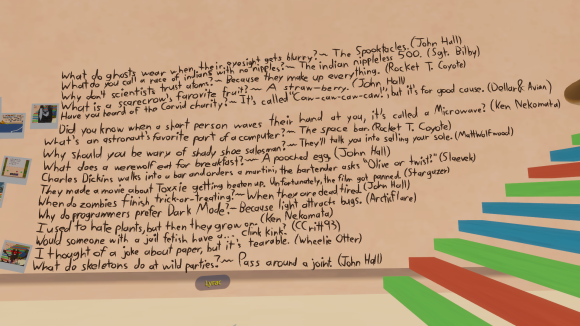 What do ghosts wear when their eyesight gets blurry?~ The Spooktacles. (John Hall)
What do you call a race of indians with no nipples?~ The indian nippleless 500. (Sgt. Bilby)
Why don't scientists trust atoms?~ Because they make up everything. (Rocket T. Coyote)
What is a scarecrow's favorite fruit?~ A straw-berry. (John Hall)
Have you heard of the Corvid charity?~ It's called "Caw-caw-caw-caw", but it's for good cause. (Dollar & Avian)
Did you know when a short person waves their hand at you, it's called a Microwave? (Ken Nekomata)
What's an astronaut's favorite part of a computer?~ The space bar. (Rocket T. Coyote)
Why should you be wary of shady shoe salesman?~ They'll talk you into selling your sole. (Matthwolfwood)
What does a werewolf eat for breakfast?~ A pooched egg. (John Hall)
Charles Dickins walks into a bar and orders a martini, the bartender asks "Olive or twist?" (Slaevek)
They made a movie about Toxxie getting beaten up. Unfortunately, the film got panned. (Stargazer)
When do zombies finish trick-or-treating?~ When they are dead tired. (John Hall)
Why do programmers prefer Dark Mode?~ Because light attracts bugs. (ArticFlare)
I used to hate plants, but then they grow on. (Ken Nekomata)
Would someone with a jail fetish have a... clink kink? (CCritt93)
I thought of a joke about paper, but it's tearable. (Wheelie Otter)
What do skeletons do at wild parties?~ Pass around a joint. (John Hall)